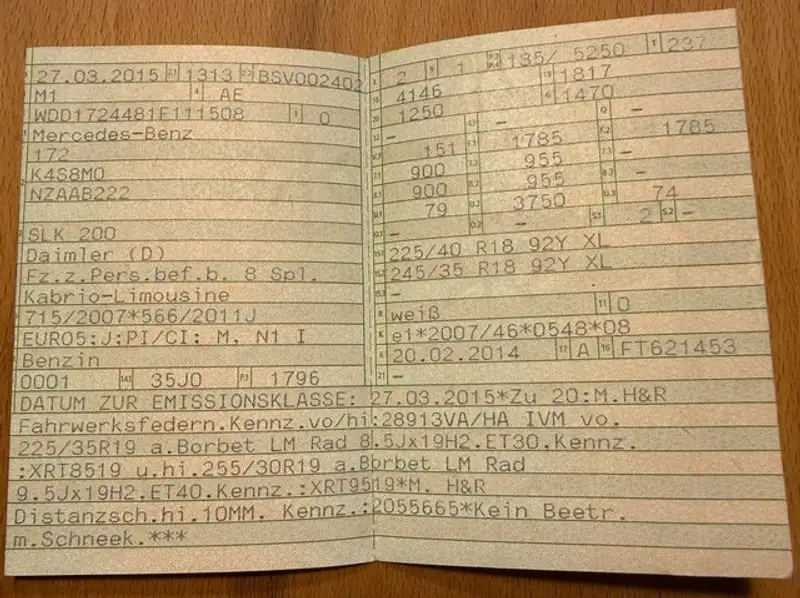 27.03.2015 2.1 1313 2.2 BSV002402
M1 4 AE
WDD1724481F111508 3 0
Mercedes-Benz
172
K4S8M0
NZAAB222
SLK 200
Daimler (D)
Fz.z.Pers.bef.b. 8 Spl.
Kabrio-Limousine
715/2007*566/2011J
EURO5:J:PI/CI: M, N1 I
Benzin
0001 14.1 35J0 P.1 1796
L 2 9 1 P.2 P.4 135/ 5250 T 237
18 4146 19 1817
20 1250 G 1470
12 – 13 – Q –
V.7 151 F.1 1785 F.2 1785
7.1 900 7.2 955 7.3 –
8.1 900 8.2 955 8.3 –
U.1 79 U.2 3750 U.3 74
O.1 – O.2 – S.1 2 S.2 –
15.1 225/40 R18 92Y XL
15.2 245/35 R18 92Y XL
15.3 –
R weiß 11 0
K e1*2007/46*0548*08
6 20.02.2014 17 A 16 FT621453
21 –
DATUM ZUR EMISSIONSKLASSE: 27.03.2015*Zu 20:M.H&R
Fahrwerksfedern.Kennz.vo/hi:28913VA/HA IVM vo.
225/35R19 a.Borbet LM Rad 8.5Jx19H2.ET30.Kennz.
:XRT8519 u.hi.255/30R19 a.Borbet LM Rad
9.5Jx19H2.ET40.Kennz.:XRT9519*M. H&R
Distanzsch.hi.10MM. Kennz.:2055665*Kein Beetr.
m.Schneek.***